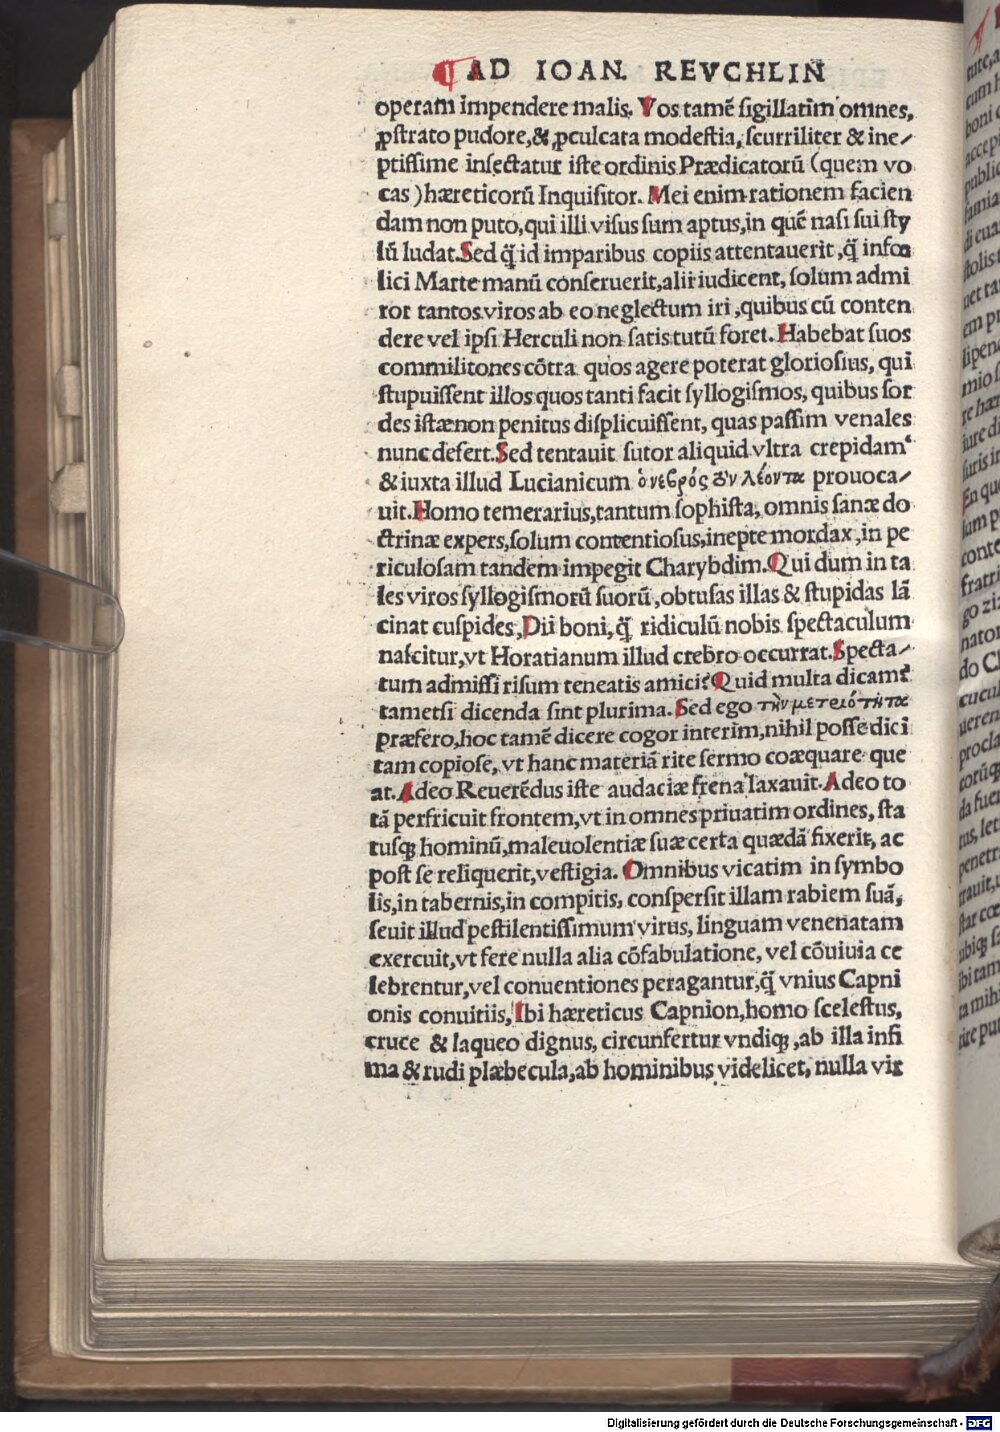 ¶ AD IOAN. REVCHLIN
operam impendere malis. Vos tamē sigillatim omnes,
ꝓstrato pudore, & ꝓculcata modestia, scurriliter & ine⸗
ptissime insectatur iste ordinis Prædicatorū (quem vo
cas) hæreticorū Inquisitor. Mei enim rationem facien
dam non puto, qui illi visus sum aptus, in quē nasi sui sty
lū ludat. Sed q̄ id imparibus copiis attentauerit, q̄ infœ
lici Marte manū conseruerit, alii iudicent, solum admi
ror tantos viros ab eo neglectum iri, quibus cū conten
dere vel ipsi Herculi non satis tutū foret. Habebat suos
commilitones cōtra quos agere poterat gloriosius, qui
stupuissent illos quos tanti facit syllogismos, quibus sor
des istæ non penitus displicuissent, quas passim venales
nunc defert. Sed tentauit sutor aliquid vltra crepidam
& iuxta illud Lucianicum ὁ νεβρός τὸν λέοντα prouoca⸗
uit. Homo temerarius, tantum sophista, omnis sanæ do
ctrinæ expers, solum contentiosus, inepte mordax, in pe
riculosam tandem impegit Charybdim. Qui dum in ta
les viros syllogismorū suorū, obtusas illas & stupidas lā
cinat cuspides, Dii boni, q̄ ridiculū nobis spectaculum
nascitur, vt Horatianum illud crebro occurrat. Specta⸗
tum admissi risum teneatis amici? Quid multa dicam?
tametsi dicenda sint plurima. Sed ego τὴν μετριότητα
præfero, hoc tamē dicere cogor interim, nihil posse dici
tam copiose, vt hanc materiā rite sermo coæquare que
at. Adeo Reuerēdus iste audaciæ frena laxauit. Adeo to
tā perfricuit frontem, vt in omnes priuatim ordines, sta
tusq; hominū, maleuolentiæ suæ certa quædā fixerit, ac
post se reliquerit, vestigia. Omnibus vicatim in symbo
lis, in tabernis, in compitis, conspersit illam rabiem suā,
seuit illud pestilentissimum virus, linguam venenatam
exercuit, vt fere nulla alia cōfabulatione, vel cōuiuia ce
lebrentur, vel conuentiones peragantur, q̄ vnius Capni
onis conuitiis, Ibi hæreticus Capnion, homo scelestus,
cruce & laqueo dignus, circunfertur vndiq;, ab illa infi
ma & rudi plæbecula, ab hominibus videlicet, nulla vir
Digitalisierung gefördert durch die Deutsche Forschungsgemeinschaft - DFG